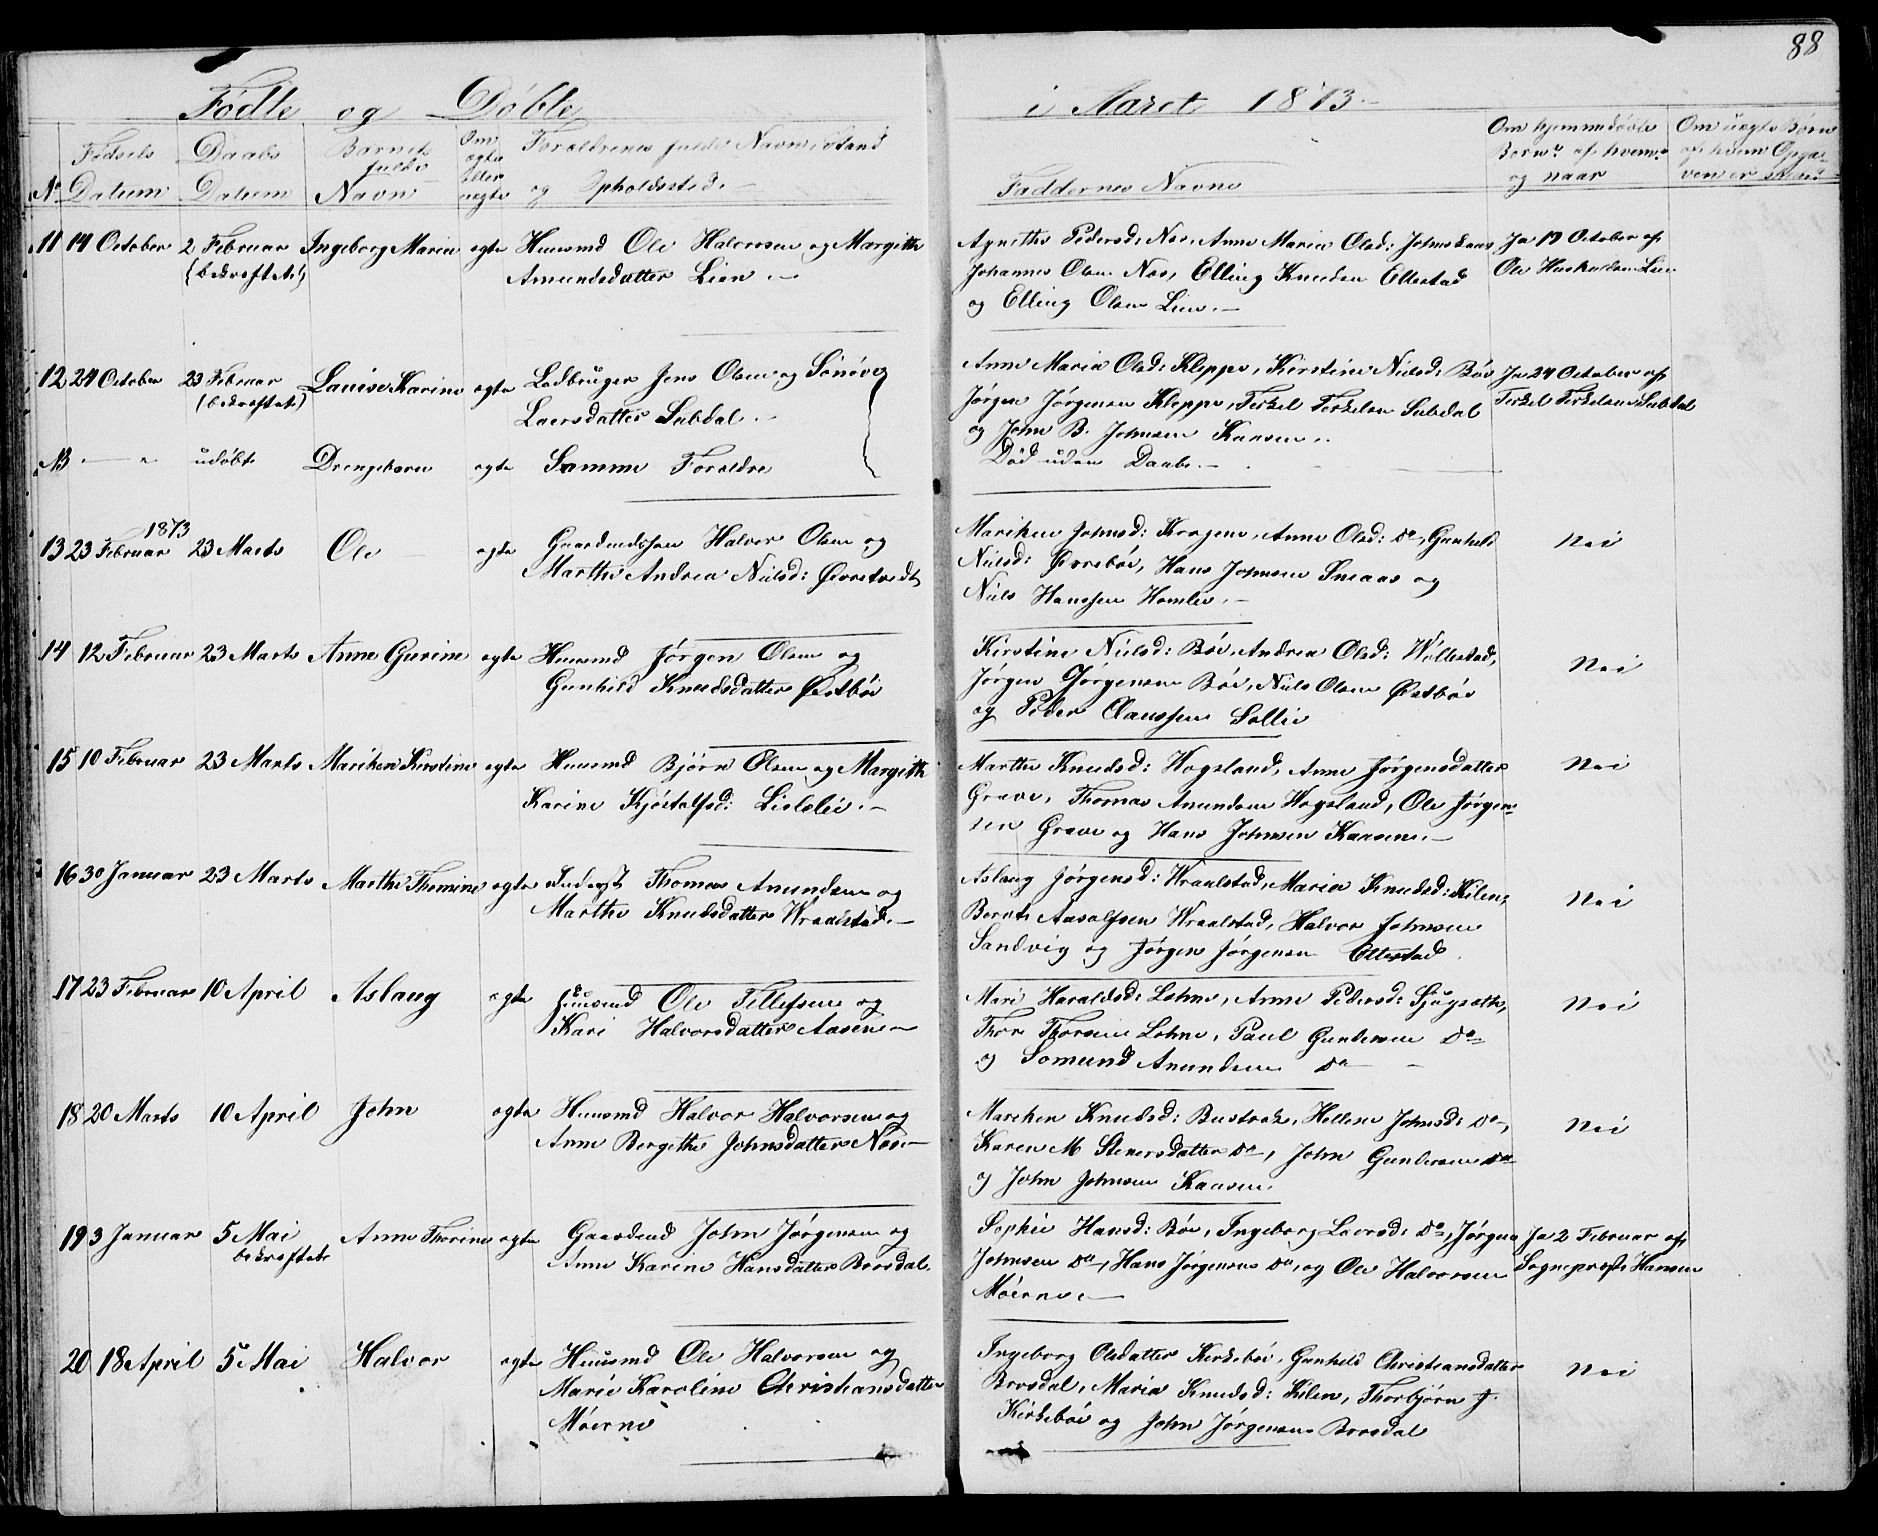 88
Födte og Döbte i Aaret 1873.
No Födsels Datum Daabs Datum Barnets fulde Navn Om ægte eller uægte Forældrenes fulde Navn, Stand og Opholdssted. Faddernes Navne Om hjemmedöbte Börn af hvem og naar Om uægte Börn af hvem Opga- ven er skeet
11 14 October 2 Februar (bekræftet) Ingeborg Maria ægte Huusmd Ole Halvorsen og Margithe
Amundsdatter Lien.
Agnethe Pedersd. Nas, Anne Maria Olsd: Johnskaas
Johannes Olsen Nas, Elling Knudsen Ellestad
og Elling Olsen Lien.
Ja 19 October af
Ole Huskuldsen Lien
12 24 October 23 Februar (bekræftet) Lauise Karine ægte Ladbruger Jens Olsen og Sönöv
Laersdatter Lubdal.
Anne Maria Olsd: Kleppe, Kirstine Nielsd: Böe
Jörgen Jörgensen Kleppe, Terkel Terkelsen Lubdal
og John B. Johnsen Kaasen.
Ja 24 October af
Terkel Terkelsen Lubdal
NB — " udöbt Drengebarn ægte Samme Forældre
Död uden Daab.
1873
13 23 Februar 23 Marts Ole ægte Gaardmdssön Halvor Olsen og
Marthe Andrea Nielsd: Övretvedt
Mariken Johnsd: Kragene, Anne Olsd: Do, Gunhild
Nielsd: Övrebö, Hans Johnsen Sneaas og
Niels Hanssen Homlie.
Nei
14 12 Februar 23 Marts Anne Gurine ægte Huusmd Jörgen Olsen og
Gunhild Knudsdatter Östböe
Kirstine Nielsd: Böe, Andrea Olsd: Wöllestad,
Jörgen Jörgensen Böe, Niels Olsen Östböe
og Peder Claussen Sollie
Nei
15 10 Februar 23 Marts Mariken Kirstine ægte Huusmd Björn Olsen og Margith
Karine Kjöstolfsd: Lislelie.
Marthe Knudsd: Hogsland, Anne Jörgensdatter
Grave, Thomas Amundsen Hogsland, Ole Jörgen-
sen Grave og Hans Johnsen Kaasen.
Nei
16 30 Januar 23 Marts Marthe Thomine ægte Inderst Thomas Amundsen og
Marthe Knudsdatter Wraalstad.
Aslaug Jörgensd: Wraalstad, Maria Knudsd: Kilen,
Berent Aasolfsen Wraalstad, Halvor Johnsen
Sandvig og Jörgen Jörgensen Ellestad.
Nei
17 23 Februar 10 April Aslaug ægte Huusmd Ole Tellefsen og
Kari Halvorsdatter Aasen
Mari Haraldsd: Lohne, Anne Pedersd:
Thor Thorsen Lohne, Paul Gundersen Do
og Somund Amundsen Do
Nei
18 20 Marts 10 April John ægte Huusmd Halvor Halvorsen og
Anne Bergithe Johnsdatter Nas
Mariken Knudsd: Bustrak, Hellene Johnsd: Do,
Karen M. Stenersdatter Do, John Gundersen Do
og John Johnsen Kaasen.
Nei
19 3 Januar 5 Mai bekræftet Anne Thorine ægte Gaardmd John Jörgensen og
Anne Karine Hansdatter Borsdal.
Sophie Hansd: Böe, Ingeborg Laersd: Do, Jörgen
Johnsen Do, Hans Jörgensen Do, og Ole Halvorsen
Möierne.
Ja 2 Februar af
Sognepræst Hansen
20 18 April 5 Mai Halvor ægte Huusmd Ole Halvorsen og
Marie Karoline Christiansdatter
Möierne
Ingeborg Olsdatter Kirkeböe, Gunhild Christiansdatter
Borsdal, Maria Knudsd: Kilen, Thorbjörn J.
Kirkeböe og John Jörgensen Borsdal
Nei